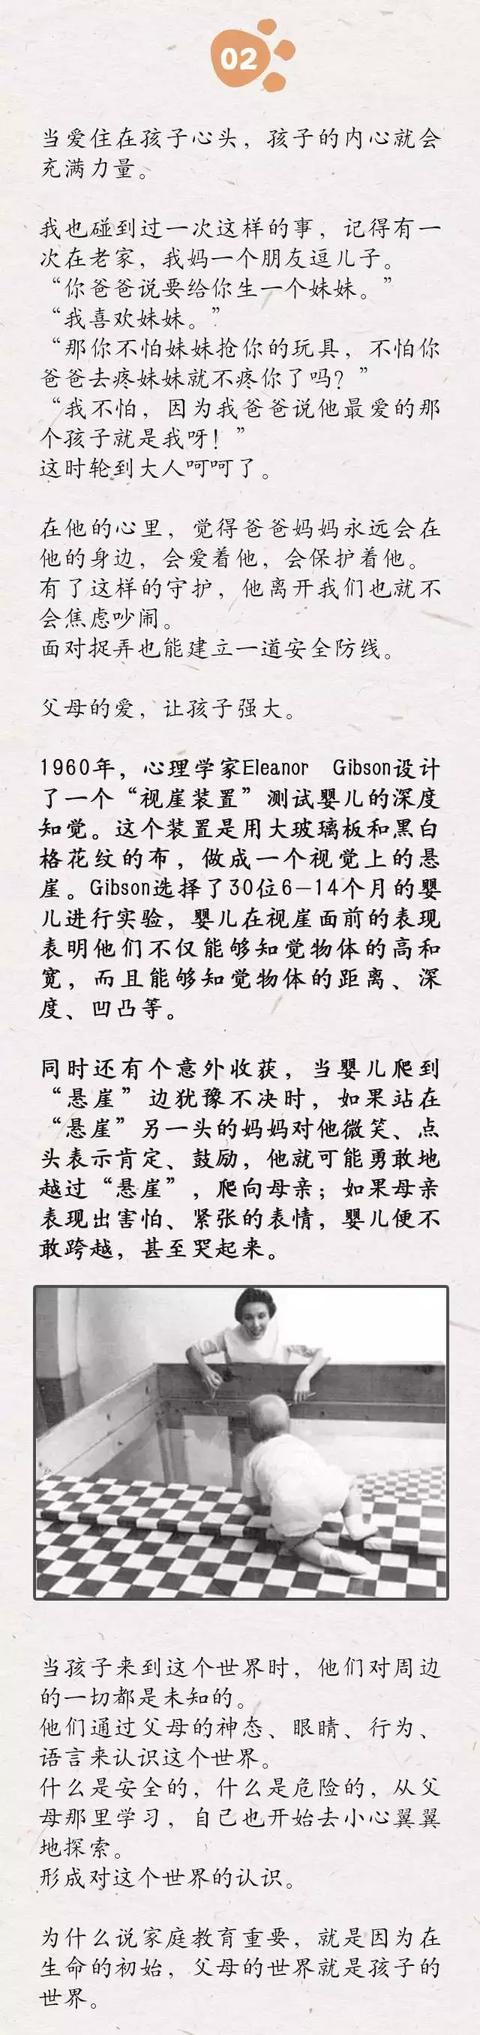 02
当爱住在孩子心头，孩子的内心就会
充满力量。
我也碰到过一次这样的事，记得有一
次在老家，我妈一个朋友逗儿子。
“你爸爸说要给你生一个妹妹。”
“我喜欢妹妹。”
“那你不怕妹妹抢你的玩具，不怕你
爸爸去疼妹妹就不疼你了吗？”
“我不怕，因为我爸爸说他最爱的那
个孩子就是我呀！”
这时轮到大人呵呵了。
在他的心里，觉得爸爸妈妈永远会在
他的身边，会爱着他，会保护着他。
有了这样的守护，他离开我们也就不
会焦虑吵闹。
面对捉弄也能建立一道安全防线。
父母的爱，让孩子强大。
1960年，心理学家Eleanor Gibson设计
了一个“视崖装置”测试婴儿的深度
知觉。这个装置是用大玻璃板和黑白
格花纹的布，做成一个视觉上的悬
崖。Gibson选择了30位6—14个月的婴
儿进行实验，婴儿在视崖面前的表现
表明他们不仅能够知觉物体的高和
宽，而且能够知觉物体的距离、深
度、凹凸等。
同时还有个意外收获，当婴儿爬到
“悬崖”边犹豫不决时，如果站在
“悬崖”另一头的妈妈对他微笑、点
头表示肯定、鼓励，他就可能勇敢地
越过“悬崖”，爬向母亲；如果母亲
表现出害怕、紧张的表情，婴儿便不
敢跨越，甚至哭起来。
当孩子来到这个世界时，他们对周边
的一切都是未知的。
他们通过父母的神态、眼睛、行为、
语言来认识这个世界。
什么是安全的，什么是危险的，从父
母那里学习，自己也开始去小心翼翼
地探索。
形成对这个世界的认识。
为什么说家庭教育重要，就是因为在
生命的初始，父母的世界就是孩子的
世界。